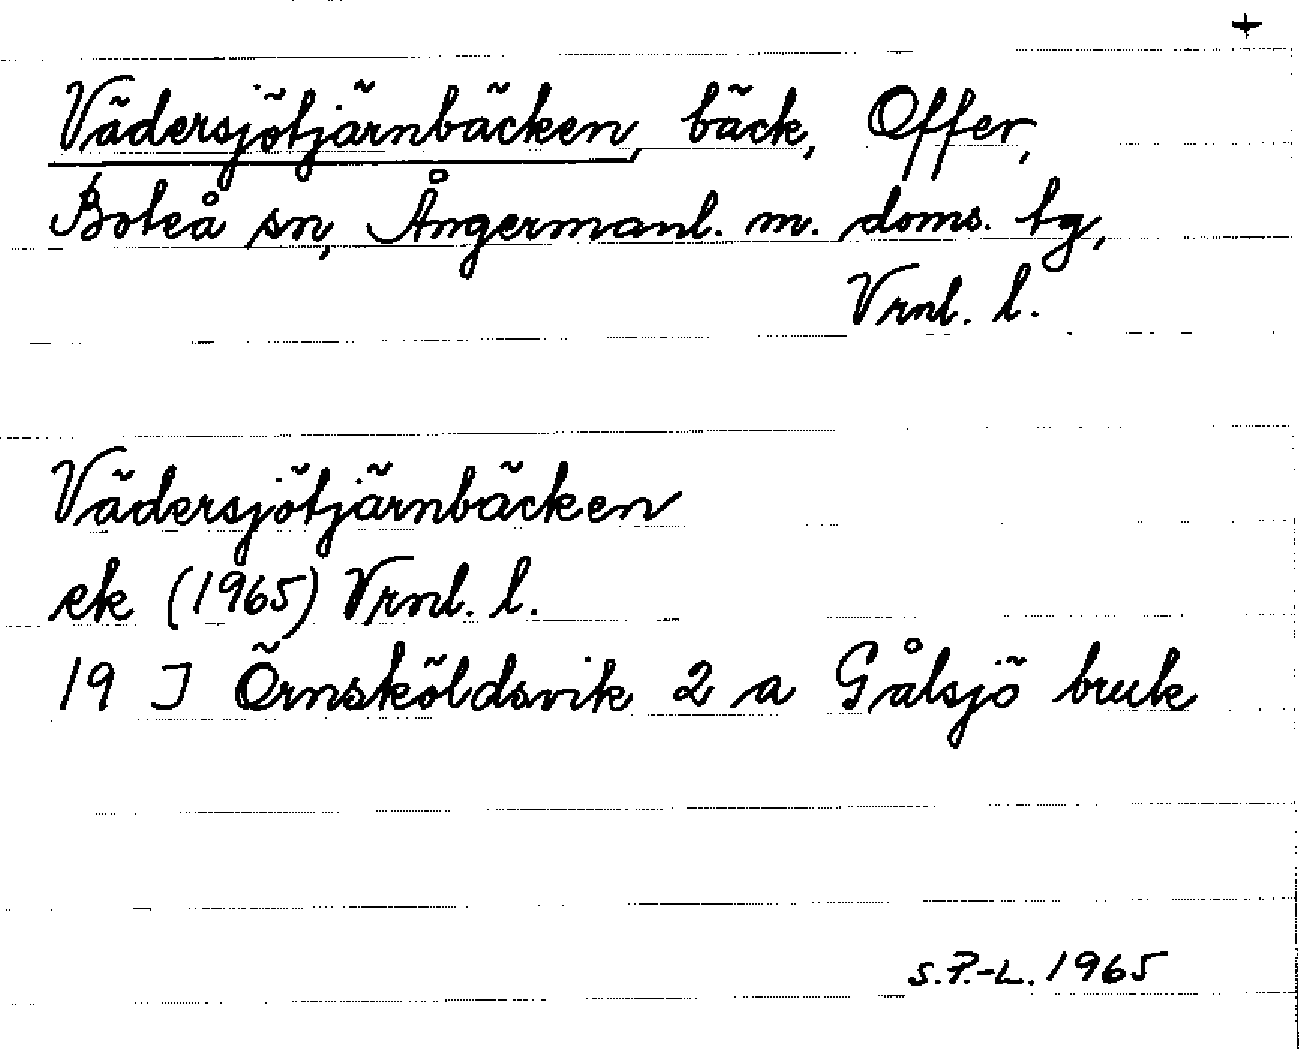 +
Vädersjötjärnbäcken, bäck, Offer,
Boteå sn, Ångermanl. m. doms. tg,
Vrnl. l.
Vädersjötjärnbäcken
ek (1965) Vrnl. l.
19 J Örnsköldsvik 2 a Gålsjö bruk
S.P.-L. 1965